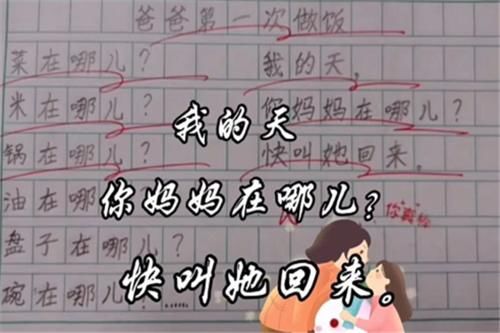 爸爸第一次做饭
菜在哪儿？
米在哪儿？
锅在哪儿？
油在哪儿？
盘子在哪儿？
碗在哪儿？
我的天，
你妈妈在哪儿？
快叫她回来。
我的天
你妈妈在哪儿？
快叫她回来。